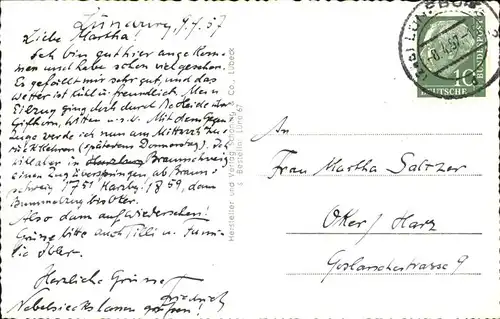 Lüneburg, 7.7.57
Liebe Martha!
Ich bin gut hier angekommen
und habe schon viel gesehen.
Es gefällt mir sehr gut, und das
Wetter ist kühl u. freundlich. Mein
Eilzug ging doch durch die Heide über
Gifhorn, u.s.w. Mit dem Gegen
zuge werde ich nun am Mittwoch zu
rückkehren (spätestens Donnerstag). Ich
will aber in Braunschweig
einen Zug überspringen ab Braun
schweig 1751 Harzbg. 1859, dann
Bummelzug bis Oker.
Also dann auf Wiedersehen!
Grüße bitte auch Tilli u. Fami
lie
Herzliche Grüße
Friedrich
lassen grüßen!
Hersteller und Verlag Schöning & Co., Lübeck
S Bestellnr. Lüne 67
LÜNEBURG
DEUTSCHE
BUNDESPOST
10
An
Frau Martha Saltzer
Oker/Harz
Goslarschestrasse 9